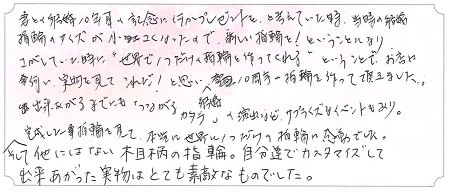 妻との結婚10年目の記念に何かプレゼントを、と考えていた時、当時の結婚
指輪のサイズが小さくなったので、新しい指輪を！ということになり
さがしていた時に"世界で1つだけの指輪を作ってくれる"ということで、お店に
伺い、実物を見て「これだ！」と思い、10周年の指輪を作って頂きました。
出来あがるまでにも"つながるカタチ"の演出など、サプライズなイベントもあり。
結婚
完成した指輪を見て、本当に世界に1つだけの指輪に感動でした。
そして他にはない木目柄の指輪。自分達でカスタマイズして
出来あがった実物はとても素敵なものでした。